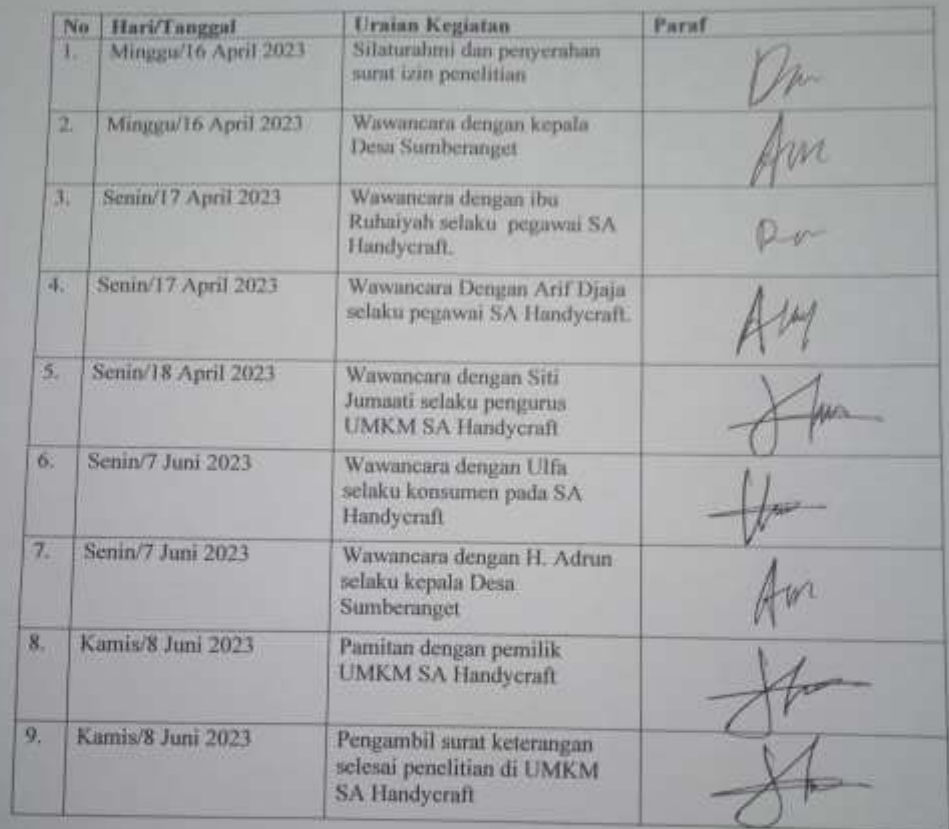 No Hari/Tanggal Uraian Kegiatan Paraf
1. Minggu/16 April 2023 Silaturahmi dan penyerahan
surat izin penelitian
2. Minggu/16 April 2023 Wawancara dengan kepala
Desa Sumberanget
3. Senin/17 April 2023 Wawancara dengan ibu
Ruhaiyah selaku pegawai SA
Handycraft.
4. Senin/17 April 2023 Wawancara Dengan Arif Djaja
selaku pegawai SA Handycraft.
5. Senin/18 April 2023 Wawancara dengan Siti
Jumaati selaku pengurus
UMKM SA Handycraft
6. Senin/7 Juni 2023 Wawancara dengan Ulfa
selaku konsumen pada SA
Handycraft
7. Senin/7 Juni 2023 Wawancara dengan H. Adrun
selaku kepala Desa
Sumberanget
8. Kamis/8 Juni 2023 Pamitan dengan pemilik
UMKM SA Handycraft
9. Kamis/8 Juni 2023 Pengambil surat keterangan
selesai penelitian di UMKM
SA Handycraft